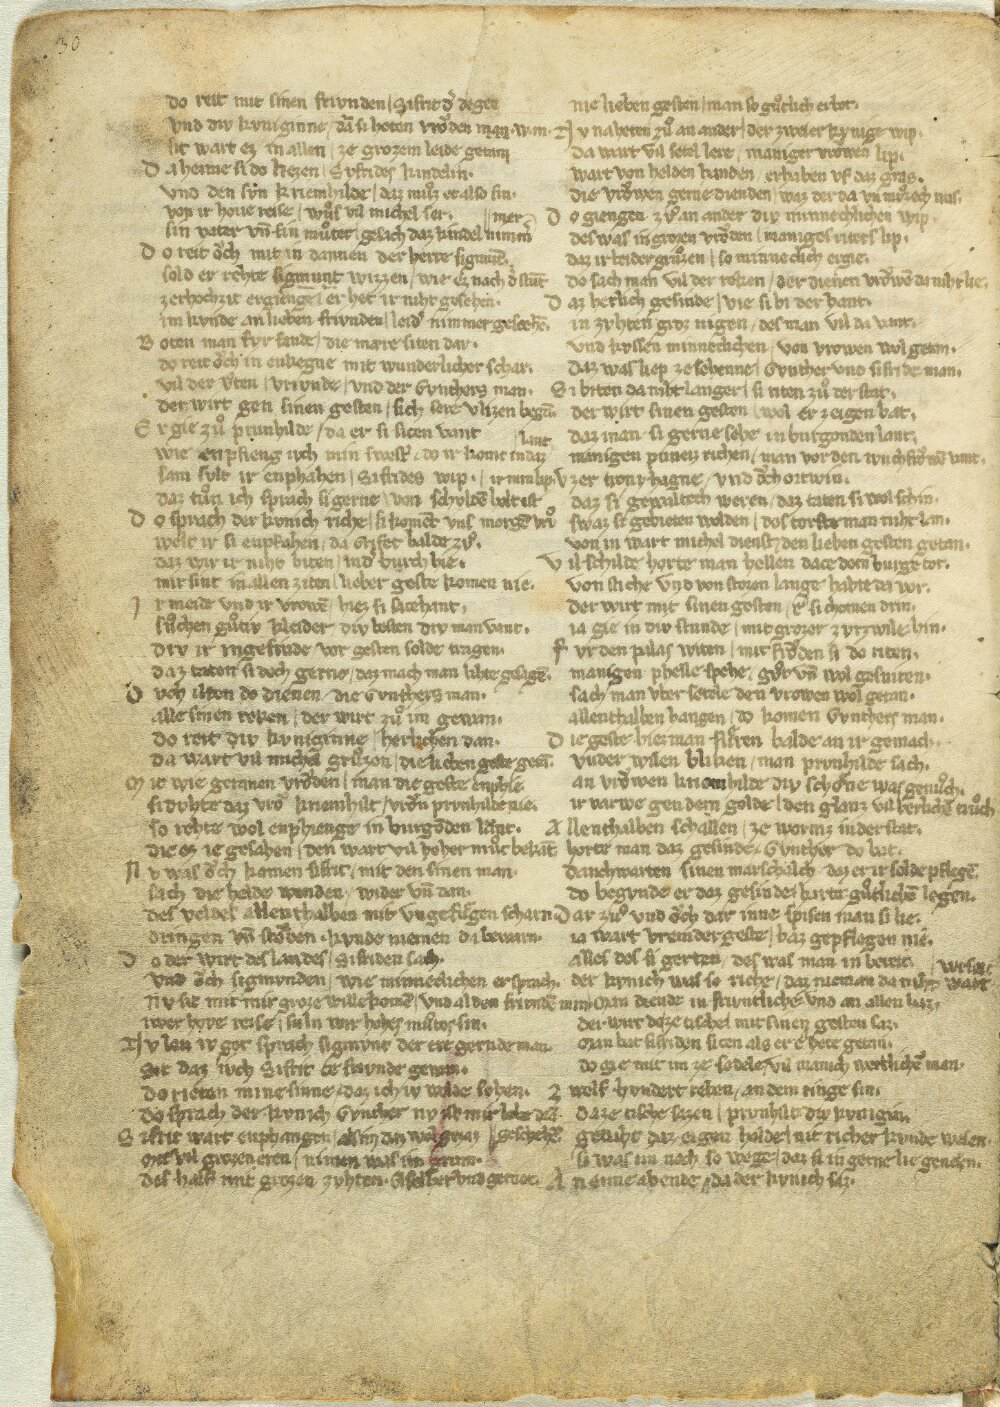 30
do reit mit sinen friunden / Sifrit d̕ degen
vnd div kvniginne / dā si heten vrövden man · wan ·
sit wart ez in allen / ze grozem leide getan
D a heime si do liezen / Syfrides kindelin ·
vnd den svn kriemhilde / daz mvͦz et also sin ·
von ir houe reise / wͦs vil michel ser · / mer
sin vater vn̄ sin mvͦter / gesach daz kindel nimm̄
D o reit oͮch mit in dannen der herre sigmunt ·
sold er rehte sigmunt wizzen / wie ez nach d̕ stūt
ze hochzit ergienge / er het ir niht gesehen ·
im kvnde an lieben friunden / leid̕ nimmer geschehē ·
B oten man fvr sande / die mære siten dar ·
do reit oͮch in enkegne mit wunderlicher schar ·
vil der vͦten / vriunde / vnd der Gvnthers man ·
der wirt gen sinen gesten / sich sere vlizen began ·
E r gie zvͦ prunhilde / da er si sitzen vant / lant
wie enpfieng ivch min swest̕ / do ir komt in daz
sam svlt ir enphahen / Sifrides wip · ir
daz tvͦn ich sprach si gerne / von schvldē holt ist
D o sprach der kvnich riche / si koment vns morgē vrͦ
welt ir si enpfahen / da grifet balde zvͦ ·
daz wir ir niht biten / in d̕ burch hie ·
mir sint in allen ziten / lieber geste komen nie ·
I r meide vnd ir vrowē / hiez si sa zehant ·
sͮchen gͮtiv kleider / div besten div man vant ·
div ir ingesinde vor gesten solde tragen ·
daz taten si doch gerne / daz mach man lihte gesagē ·
O vch ilten do dienen / die Gvnthers man ·
alle sinen reken / der wirt zvͦ im gewan ·
do reit div kvniginne / herlichen dan ·
da wart vil michel grvͦzen / die lieben geste getā ·
M it wie getanen vrövden / man die geste enphie
si dvhte daz vroͮ kriemhilt / vroͮn prvnhilde nie ·
so rehte wol enphienge in burgōden lant ·
die ez ie gesahen / den wart vil hoher mvͦt bekāt
N v was oͮch komen Sifrit / mit den sinen man ·
sach die helde wenden / wider vn̄ dan ·
des veldes allenthalben mit vngefvgen scharn ·
dringen vn̄ stövben · kvnde niemen da bewarn ·
D o der wirt des landes / Sifriden sach ·
vnd oͮch sigmvnden / wie minneclichen er sprach ·
nv sit mir groze willekomē / vnd al den friundē min
iwer hove reise / suln wir hohes mvͦtes sin ·
N v lon iv got sprach Sigmvnt der ere gernde man ·
Sit daz ivch Sifrit ce friunde gewan ·
do rieten mine sinne / daz ich iv wolde sehen ·
do sprach der kvnich Gvnther nv ist mir liebe dran
S ifrit wart enphangen / als im daz wol gezam / geschehē
mit vil grozen eren / niman was im gram ·
des half mit grozen zvhten · Giselher vnd gernot ·
nie lieben gesten / man so gvͦtlich erbot ·
N v naheten zvͦ an ander / der zweier kvnige wip ·
da wart vil setel lere / maniger vrowen lip ·
wart von helden handen / erhaben vf daz gras ·
die vrowen gerne dienden / waz der da vnmvͦzech was ·
D o giengen zvͦ an ander div minneclichen wip ·
des was in grozen vrövden / maniges riters lip ·
daz ir beider grvͦzen / so minneclich ergie ·
do sach man vil der reken / der dienen vrowē da niht lie ·
D az herlich gesinde / vie si bi der hant ·
in zvhten groz nigen / des man vil da vant ·
vnd kvssen minneclichen / von vrowen wol getan ·
daz was liep ze sehenne / Gvnther vnd sifride man ·
S i biten da niht langer / si riten zvͦ der stat ·
der wirt sinen gesten / wol erzeigen bat ·
daz man si gerne sehe in burgonden lant ·
manigen pvneiz richen / man vor den ivnchfrowē vant ·
V zer trony hagne / vnd oͮch ortwin ·
daz si gewaltech weren / daz taten si wol schin ·
swaz si gebieten wolden / des torste man niht lan ·
von in wart michel dienst / den lieben gesten getan ·
V il schilde horte man hellen da ce dem burge tor ·
von stiche vnd von stozen lange habte da vor ·
der wirt mit sinen gesten / e͛ si chomen drin ·
ia gie in div stunde / mit grozer kvrzwile hin ·
F vr den palas witen / mit frövden si do riten ·
manigen phelle spehe / gvͦt vn̄ wol gesniten ·
sach man vber setele den vrowen wol getan ·
allenthalben hangen / do komen Gvnthers man ·
D ie geste hiez man fvͦren balde an ir gemach ·
vnder wilen bliken / man prvnhilde sach ·
an vrowen kriemhilde div schone was genvͦch ·
ir varwe gen dem golde / den glanz vil herlichē trvͦch
A llenthalben schallen / ze wormz in der stat ·
horte man daz gesinde · Gvnther do bat ·
danchwarten sinen marschalch / daz er ir solde pflegē ·
do begunde er daz gesinde / harte gvͦtlichē legen ·
D ar zvͦ vnd oͮch dar inne spisen man si lie ·
ia wart vremder geste / baz gepflegen nie ·
alles des si gerten / des was man in bereit / verseit
der kvnich was so riche / daz nieman da niht wart
M an diende in friuntliche vnd an allen haz ·
der wirt do ze tische / mit sinen gesten saz ·
Man bat sifriden sitzen als er e͛ hete getan ·
do gie mit im ze sedele / vil manich wetlichē man ·
Z welf hvndert reken / an dem ringe sin ·
da ze tische sazen / prvnhilt div kvnigin ·
gedaht daz eigen holde / nit richer kvnde wesen ·
si was im noch so wege / daz si in gerne lie genesen ·
A n eime abende / da der kvnich saz ·